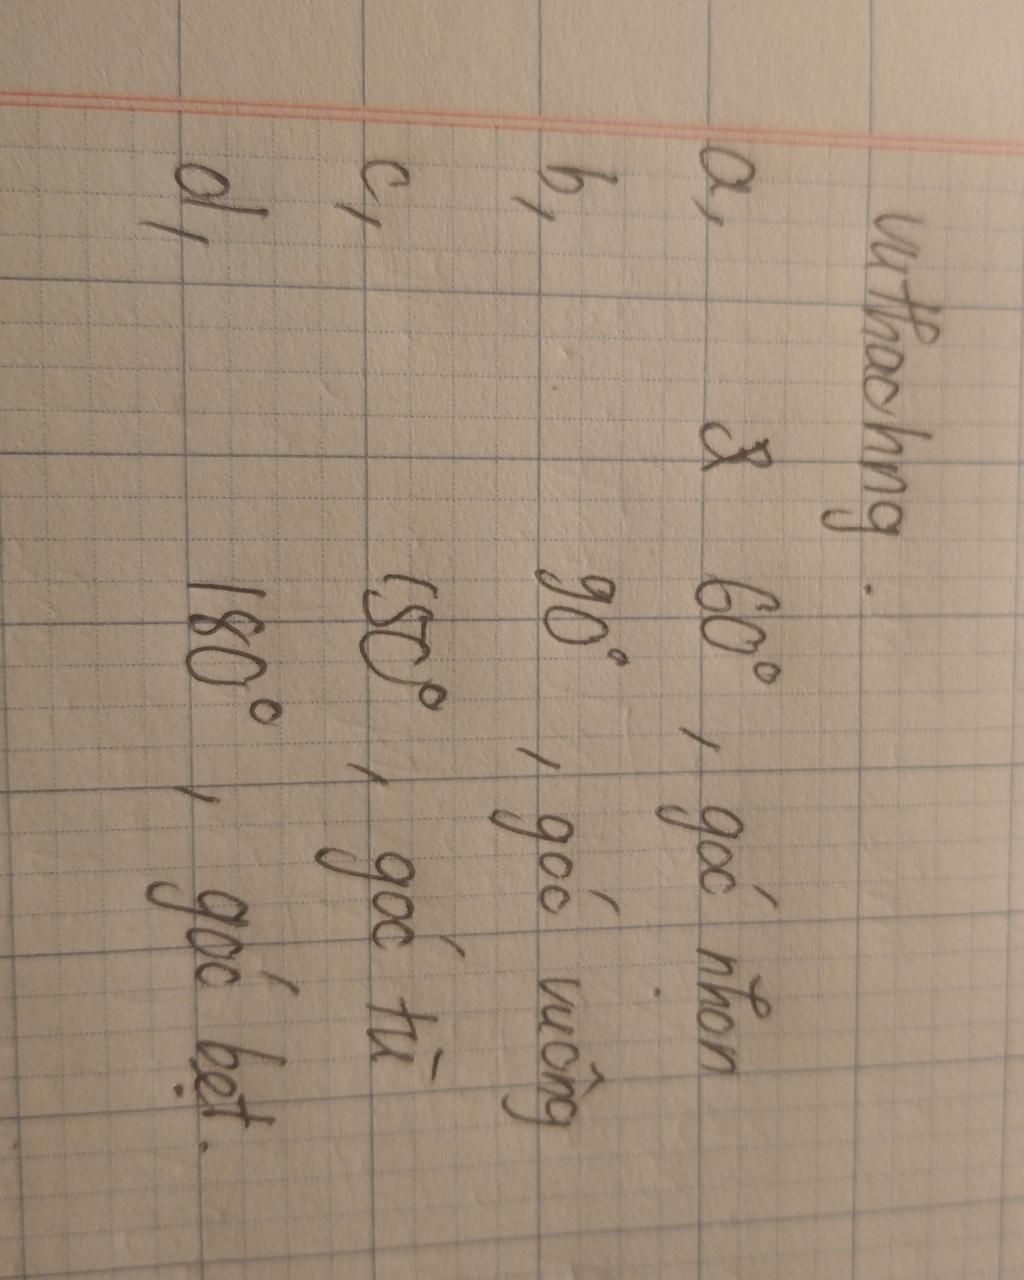 a, 60°, góc nhọn
b, 90°, góc vuông
c, 150°, góc tù
d, 180°, góc bẹt.